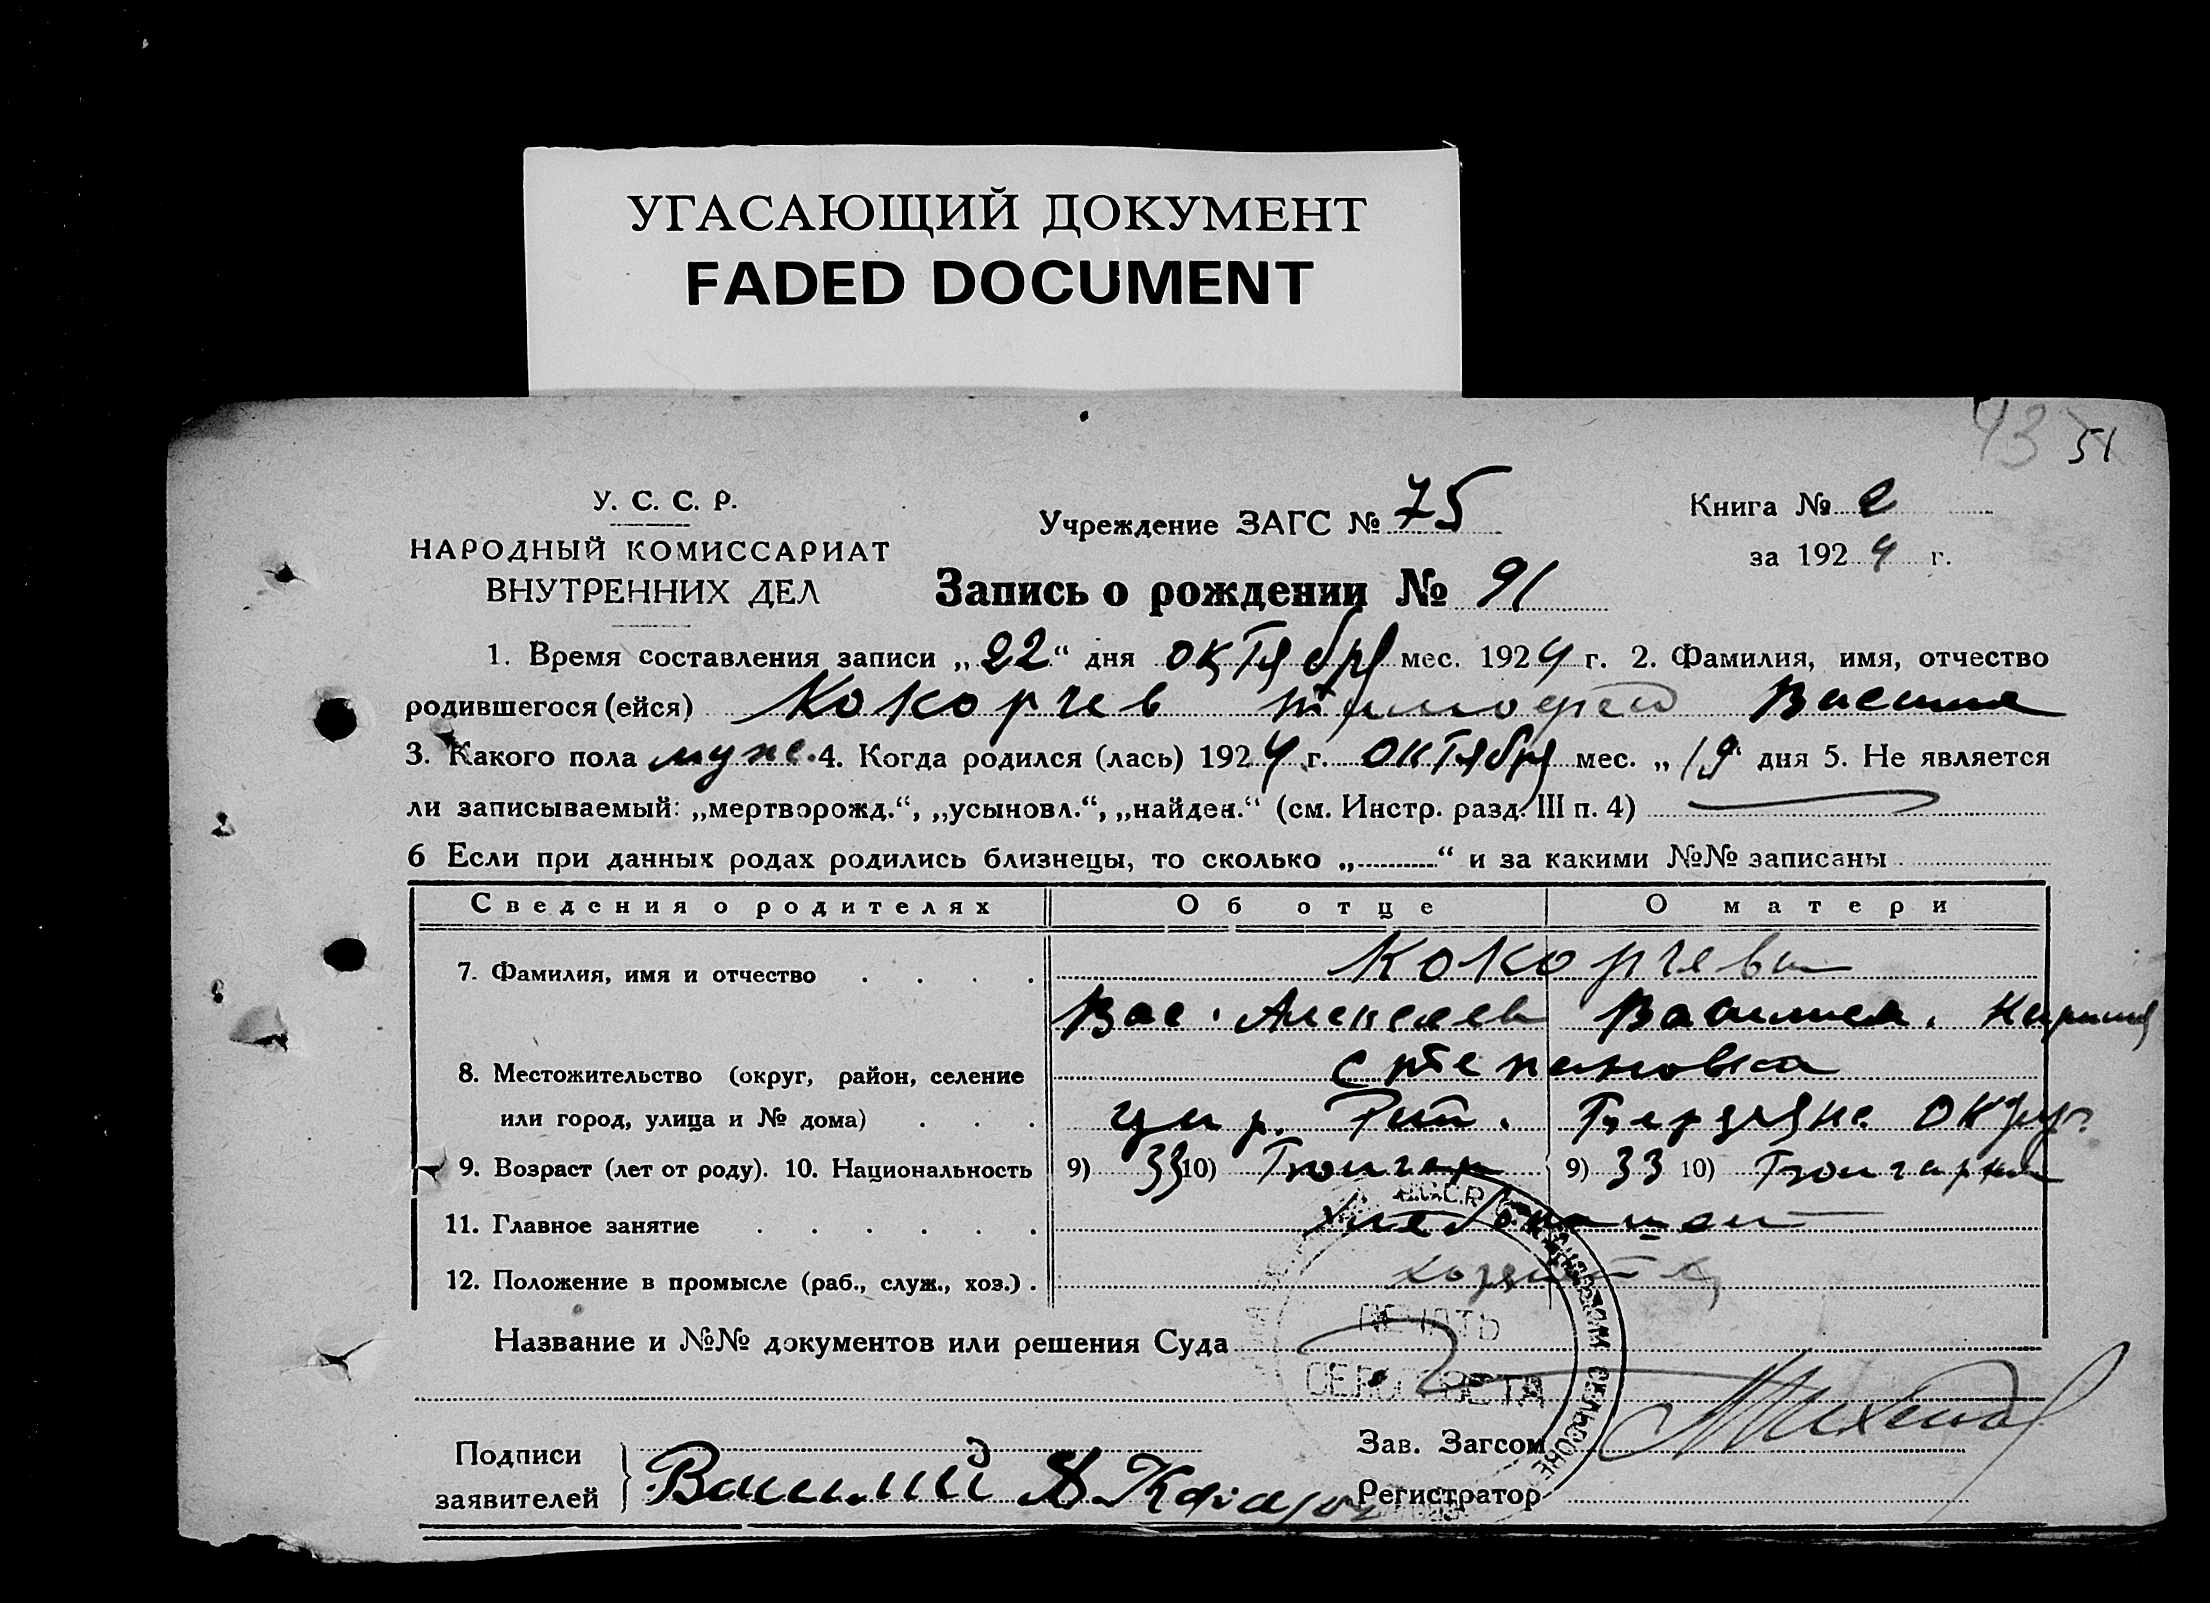 УГАСАЮЩИЙ ДОКУМЕНТ
FADED DOCUMENT
43 51
У. С. С. Р.
НАРОДНЫЙ КОМИССАРИАТ
ВНУТРЕННИХ ДЕЛ
Учреждение ЗАГС № 75
Книга № 2
за 1924 г.
Запись о рождении № 91
1. Время составления записи „22“ дня октября мес. 1924 г. 2. Фамилия, имя, отчество
родившегося (ейся) Кокорчев Тимофей
3. Какого пола муж. 4. Когда родился (лась) 1924 г. октября мес. „19 дня 5. Не является
ли записываемый: „мертворожд.“, „усыновл.“, „найден.“ (см. Инстр. разд. III п. 4)
6 Если при данных родах родились близнецы, то сколько „..........“ и за какими №№ записаны
Сведения о родителях Об отце О матери
7. Фамилия, имя и отчество Кокорчевы
Вас. Алексеев
8. Местожительство (округ, район, селение Степановка
или город, улица и № дома) округ.
9. Возраст (лет от роду). 10. Национальность 9) 33 10) 9) 33 10)
11. Главное занятие
12. Положение в промысле (раб., служ., хоз.).
Название и №№ документов или решения Суда
ПЕЧАТЬ
СЕЛЬСОВЕТА
Подписи
заявителей
Василий
Зав. Загсом
Регистратор